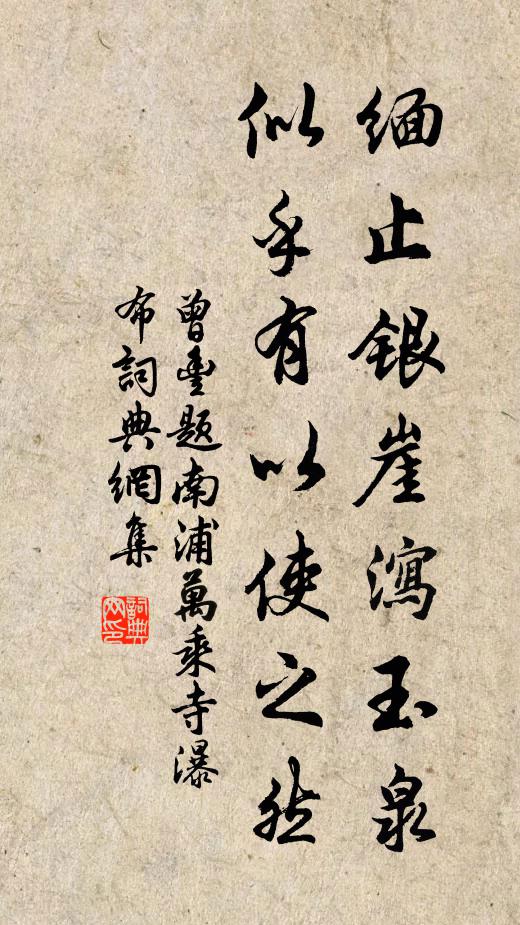 缅止銀崖瀉玉泉
似乎有以使之然
曾豐題南浦萬乘寺瀑
布詞典網集
詞典
网印